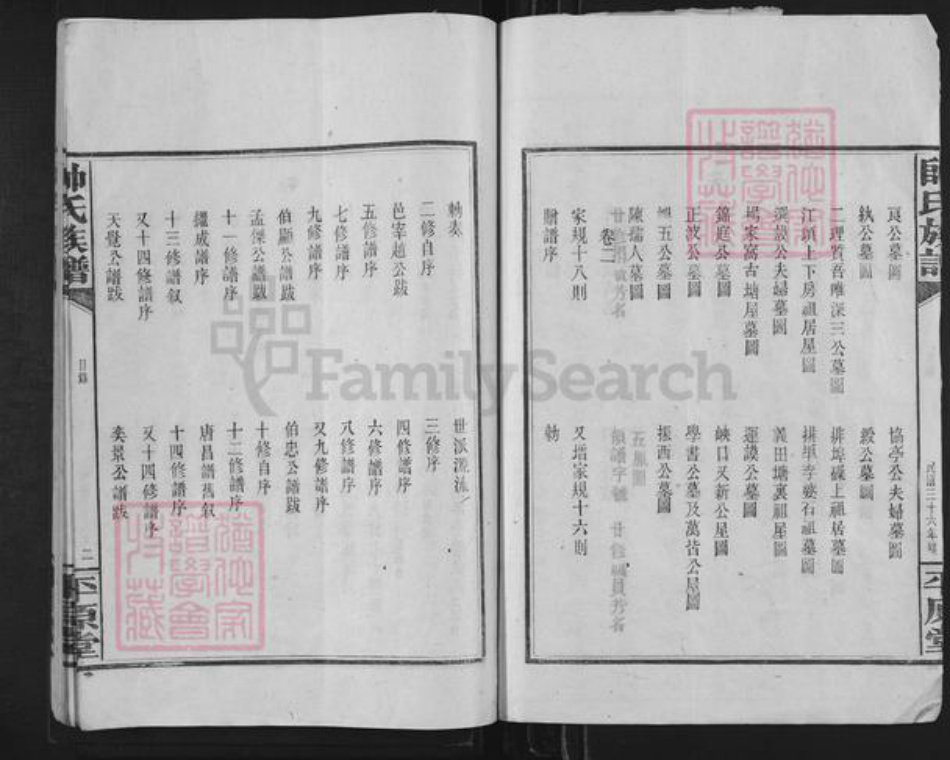 師氏族譜
民國三十六年
平原堂
良公墓圖
協亭公夫婦墓圖
紈公墓圖
毅公墓圖
二理質吾唯深三公墓圖
排埠磜上祖居墓圖
江頭上下房祖居屋圖
排里李婆石祖墓圖
漢裁公夫婦墓圖
義田塘裏祖屋圖
場家窩古塘屋墓圖
運謨公墓圖
錦庭公墓圖
峽口又新公屋圖
正波公墓圖
學書公墓及萬皆公屋圖
五公墓圖
振西公墓圖
陳孺人墓圖
五服圖
卷二
家規十八則
又增家規十六則
贈譜序
勑
勑奏
世派源流
二修自序
三修序
邑宰趙公跋
四修譜序
五修譜序
六修譜序
七修譜序
八修譜序
九修譜序
又九修譜序
伯顯公譜跋
伯忠公譜跋
孟傑公譜跋
十修自序
十一修譜序
十二修譜序
繼成譜序
唐昌譜舊叙
十三修譜叙
十四修譜序
又十四修譜序
又十四修譜序
天覺公譜跋
奕景公譜跋
帥氏族譜
目錄
二
平原堂
FamilySearch